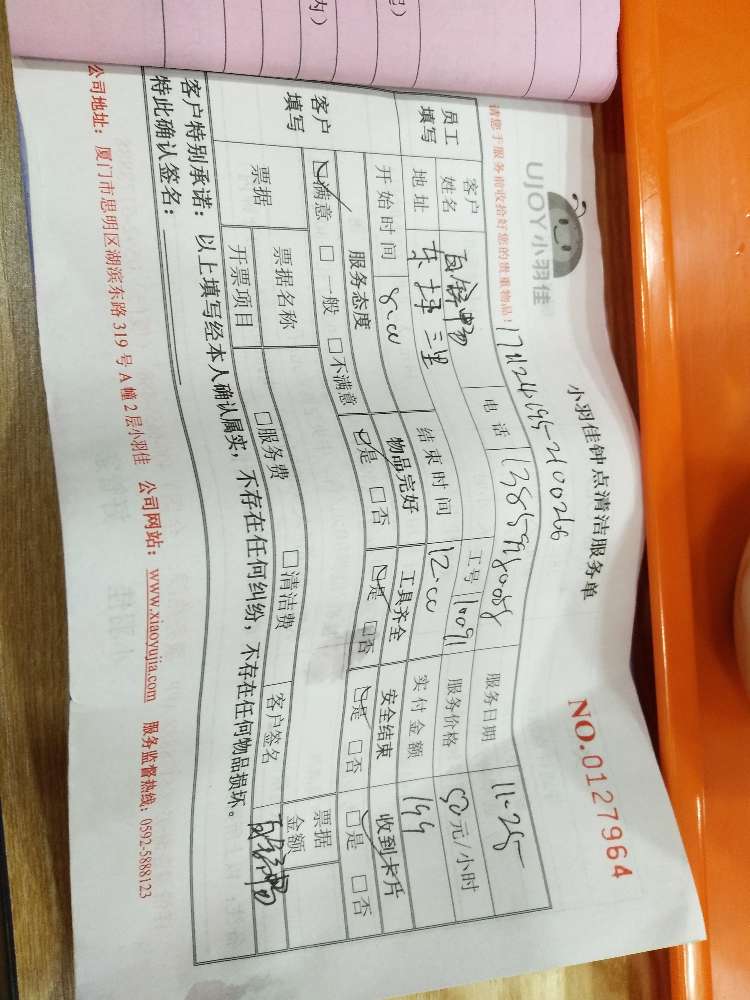 UJOY小羽佳
小羽佳钟点清洁服务单
NO.0127964
请您于服务前收拾好您的贵重物品！
员工填写
客户姓名
电话
服务日期 11.25
地址
三里
工号 11091
服务价格 50元/小时
开始时间 8.00
结束时间 12.00
实付金额 199
客户填写
服务态度 物品完好 工具齐全 安全结束 收到卡片
☑满意 □一般 □不满意 ☑是 □否 ☑是 □否 ☑是 □否 □是 □否
票据
票据名称
票据金额
开票项目 □服务费 □清洁费 客户签名
客户特别承诺：以上填写经本人确认属实，不存在任何纠纷，不存在任何物品损坏。
特此确认签名：
公司地址：厦门市思明区湖滨东路319号A幢2层小羽佳 公司网站：www.xiaoyujia.com 服务监督热线：0592-5888123